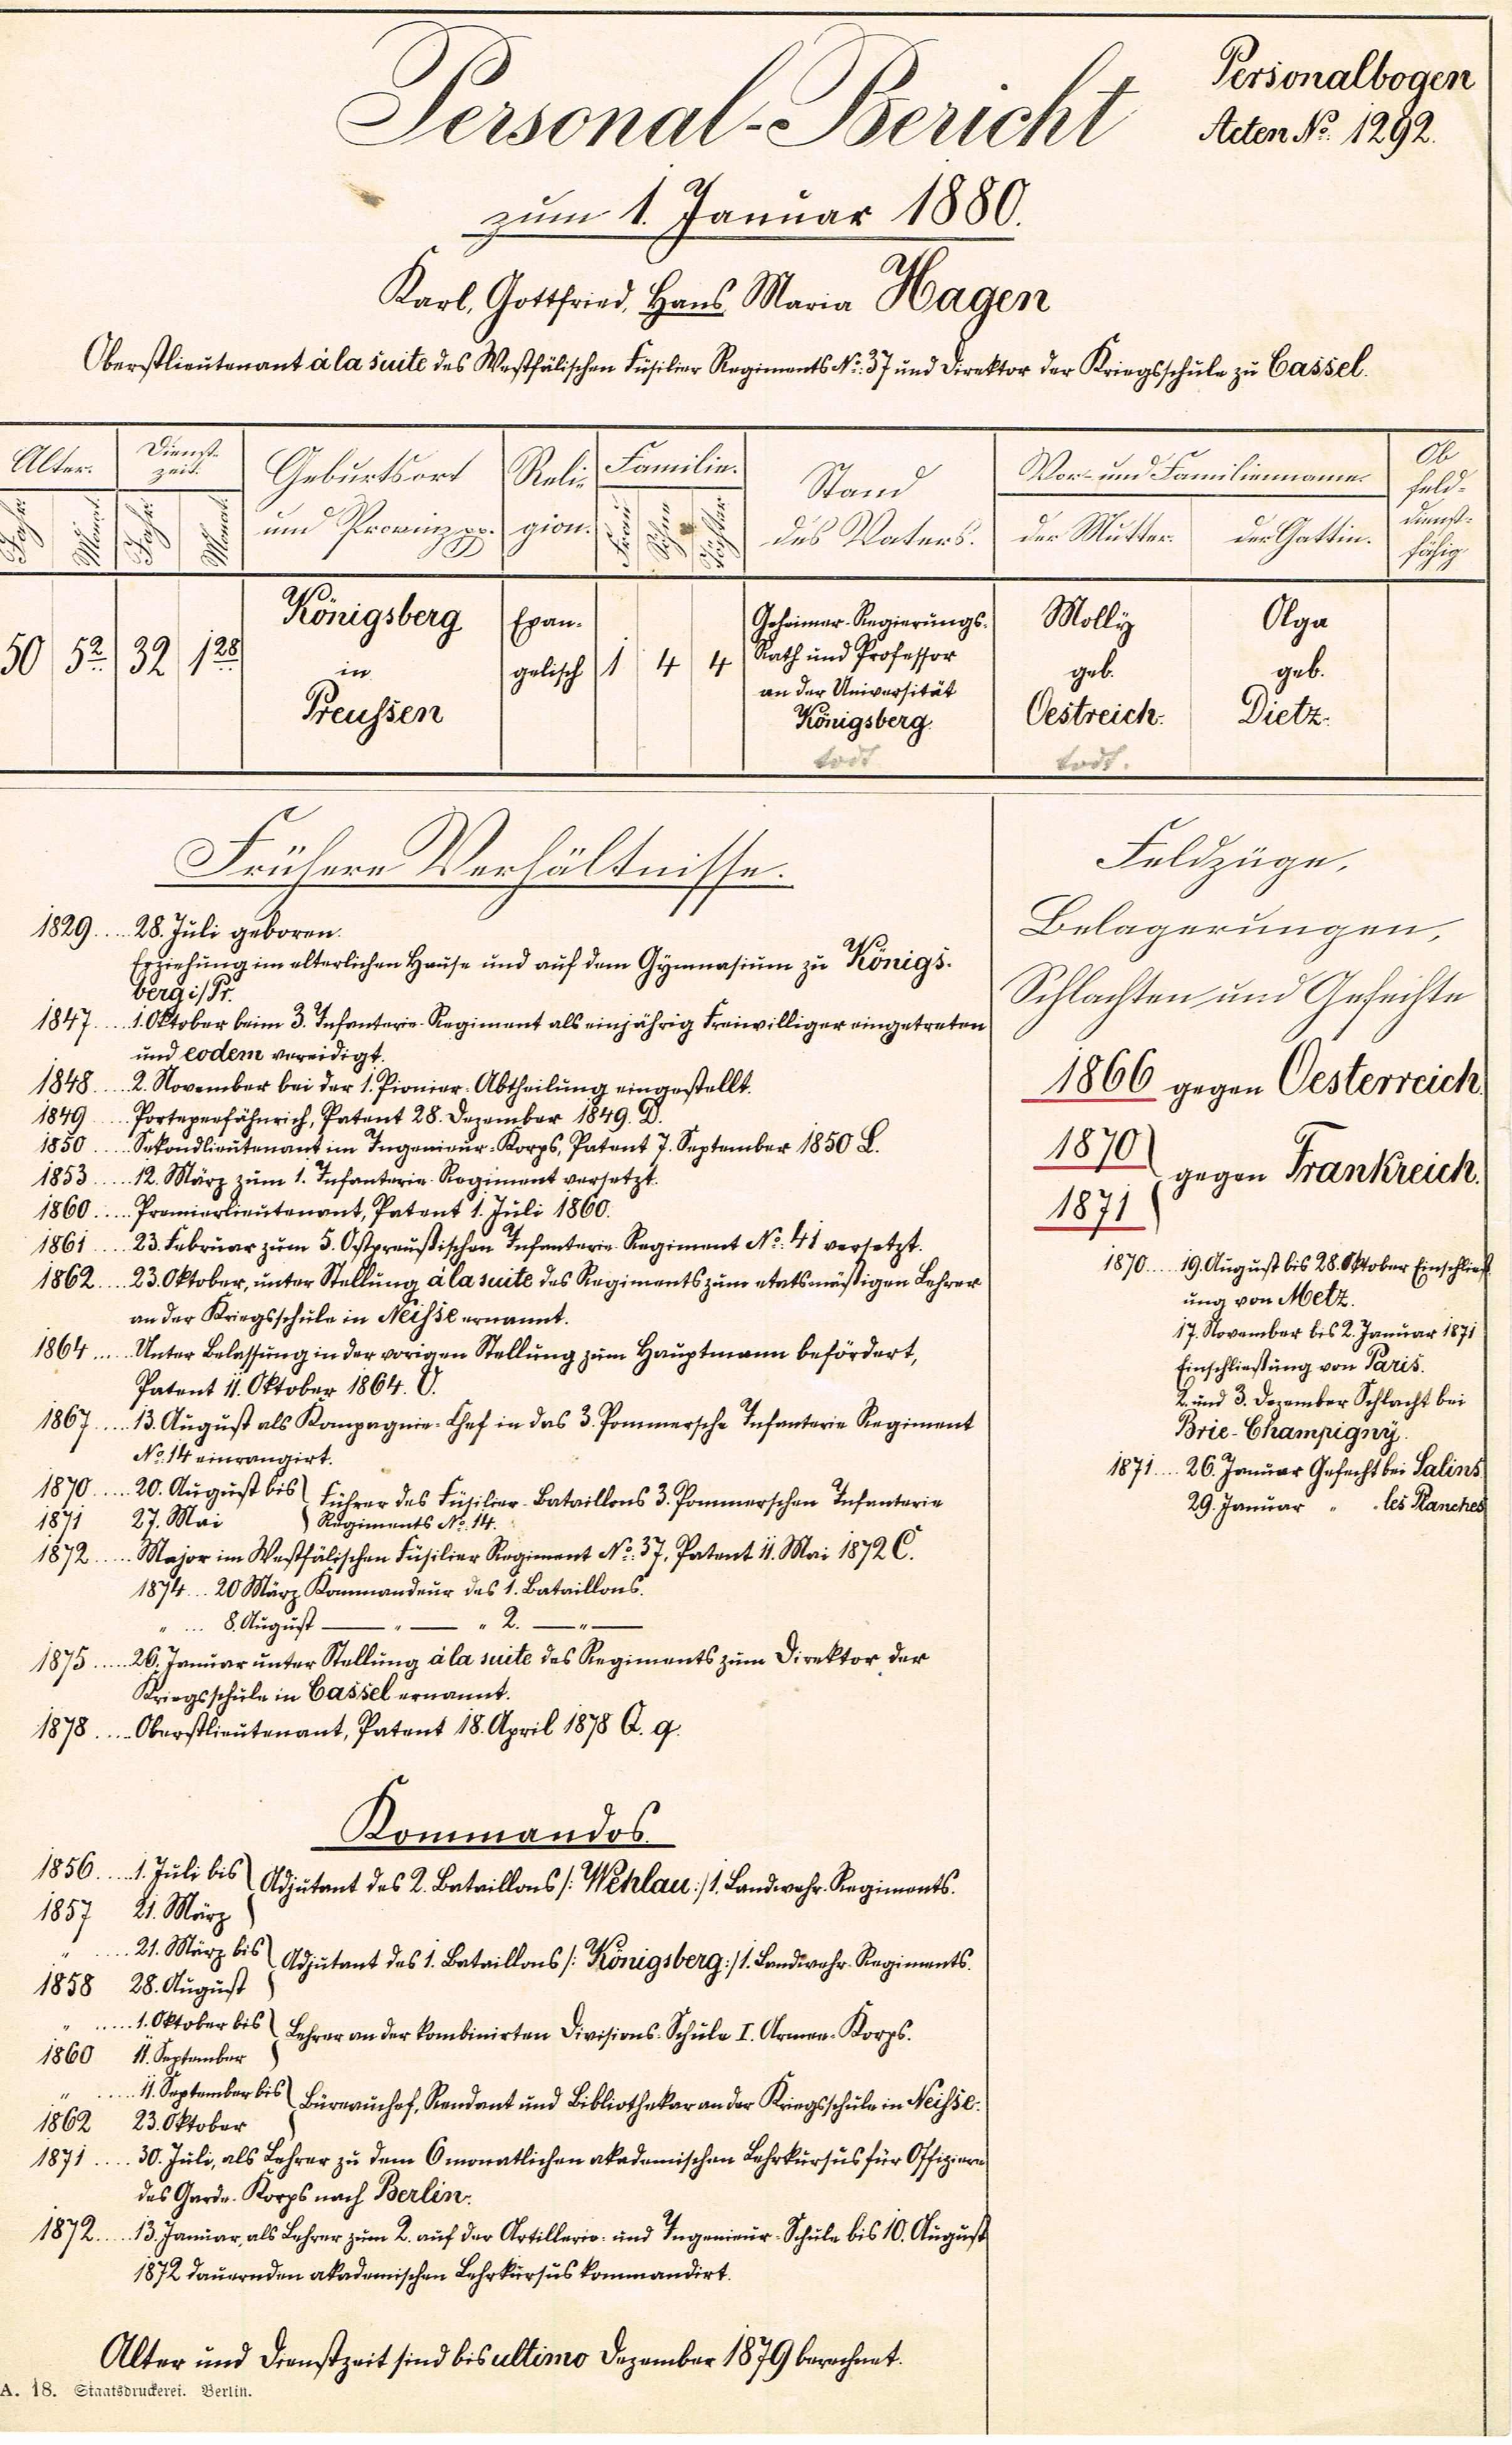 Personal-Bericht
Personalbogen
Acten No. 1292.
zum 1. Januar 1880.
Karl, Gottfried, Hans Maria Hagen
Oberstlieutenant à la suite des Westfälischen Füsilier Regiments No. 37 und Direktor der Kriegsschule zu Cassel.
Alter.
Dienst-
zeit.
Geburtsort
und Provinz pp.
Reli-
gion.
Familie.
Stand
des Vaters.
Vor- und Familienname
Ob
feld-
dienst-
fähig
Jahr
Monat
Jahr
Monat
Frau
Söhne
Töchter
der Mutter.
der Gattin.
50
5 2
32
1 28
Königsberg
in
Preussen
Evan-
gelisch
1
4
4
Geheimer-Regierungs-
Rath und Professor
an der Universität
Königsberg.
todt
Molly
geb.
Oestreich.
todt.
Olga
geb.
Dietz.
Frühere Verhältnisse.
1829.... 28. Juli geboren.
Erziehung im elterlichen Hause und auf dem Gymnasium zu Königs-
berg i/Pr.
1847.... 1. Oktober beim 3. Infanterie-Regiment als einjährig Freiwilliger eingetreten
und eodem vereidigt.
1848.... 2. November bei der 1. Pionier-Abtheilung eingestellt.
1849.... Portepeefähnrich, Patent 28. Dezember 1849. D.
1850.... Sekondlieutenant im Ingenieur-Korps, Patent 7. September 1850 L.
1853.... 12. März zum 1. Infanterie-Regiment versetzt.
1860.... Premierlieutenant, Patent 1. Juli 1860.
1861.... 23. Februar zum 5. Ostpreußischen Infanterie-Regiment No. 41 versetzt.
1862.... 23. Oktober, unter Stellung à la suite des Regiments zum etatsmäßigen Lehrer
an der Kriegsschule in Neisse ernannt.
1864.... Unter Belassung in der vorigen Stellung zum Hauptmann befördert,
Patent 11. Oktober 1864. V.
1867.... 13. August als Kompagnie-Chef in das 3. Pommersche Infanterie Regiment
No. 14 einrangirt.
1870.... 20. August bis
1871 27. Mai
Führer des Füsilier-Bataillons 3. Pommerschen Infanterie
Regiments No. 14.
1872.... Major im Westfälischen Füsilier Regiment No. 37, Patent 11. Mai 1872 C.
1874... 20 März Kommandeur des 1. Bataillons.
" ... 8. August — " — " 2. — " —
1875.... 26. Januar unter Stellung à la suite des Regiments zum Direktor der
Kriegsschule in Cassel ernannt.
1878.... Oberstlieutenant, Patent 18. April 1878 A. g.
Kommandos.
1856.... 1. Juli bis
1857 21. März
Adjutant des 2. Bataillons /: Wehlau :/ 1. Landwehr-Regiments.
" .... 21. März bis
1858 28. August
Adjutant des 1. Bataillons /: Königsberg :/ 1. Landwehr-Regiments.
" .... 1. Oktober bis
1860 11. September
Lehrer an der kombinirten Divisions-Schule I. Armee-Korps.
" .... 11. September bis
1862 23. Oktober
Büreauchef, Rendant und Bibliothekar an der Kriegsschule in Neisse.
1871.... 30. Juli, als Lehrer zu dem 6 monatlichen akademischen Lehrkursus für Offiziere
des Garde-Korps nach Berlin.
1872.... 13. Januar, als Lehrer zum 2. auf der Artillerie- und Ingenieur-Schule bis 10. August
1872 dauernden akademischen Lehrkursus kommandirt.
Alter und Dienstzeit sind bis ultimo Dezember 1879 berechnet.
A. 18. Staatsdruckerei. Berlin.
Feldzüge,
Belagerungen,
Schlachten und Gefechte
1866 gegen Oesterreich
1870
1871
gegen Frankreich.
1870.... 19. August bis 28. Oktober Einschließ
ung von Metz.
17. November bis 2. Januar 1871
Einschließung von Paris.
2. und 3. Dezember Schlacht bei
Brie-Champigny.
1871.... 26. Januar Gefecht bei Salins
29. Januar " " les Planches